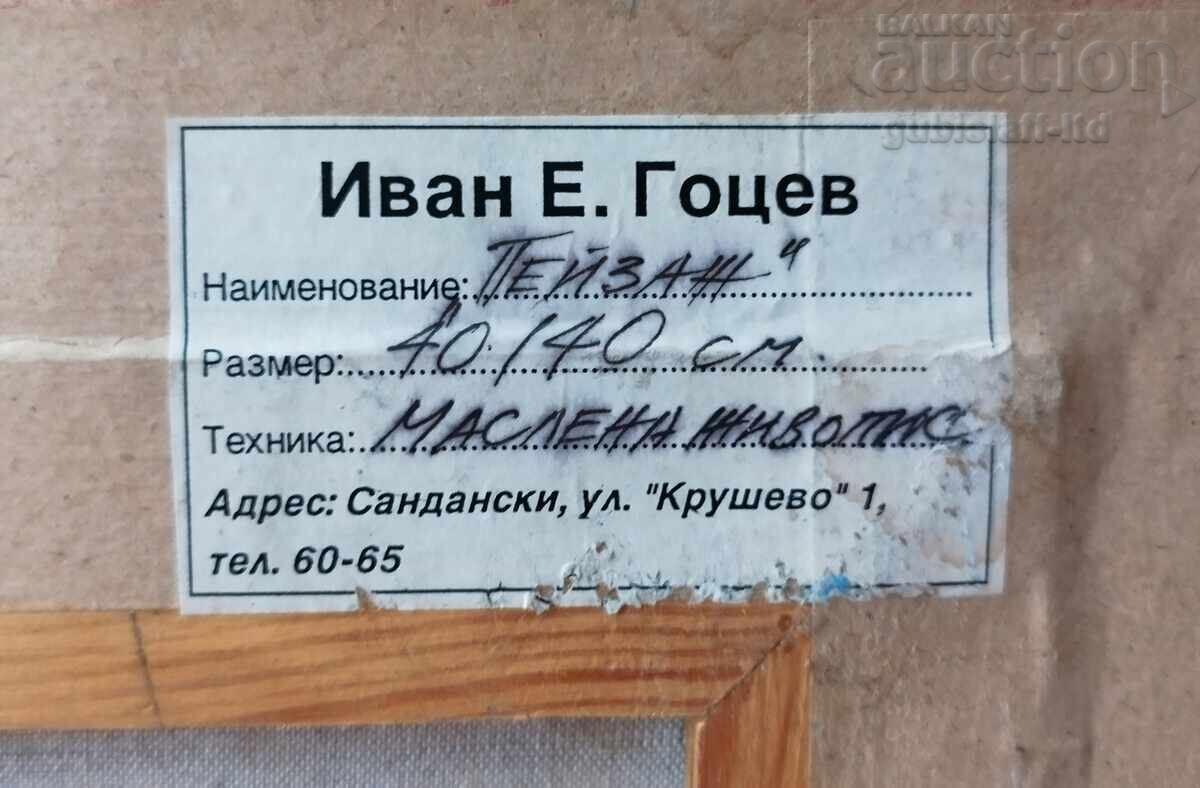 BALKAN
auction
gubielati-ltd
Иван Е. Гоцев
Наименование: "Пейзаж"
Размер: 40/40 см.
Техника: Маслена живопис
Адрес: Сандански, ул. "Крушево" 1,
тел. 60-65